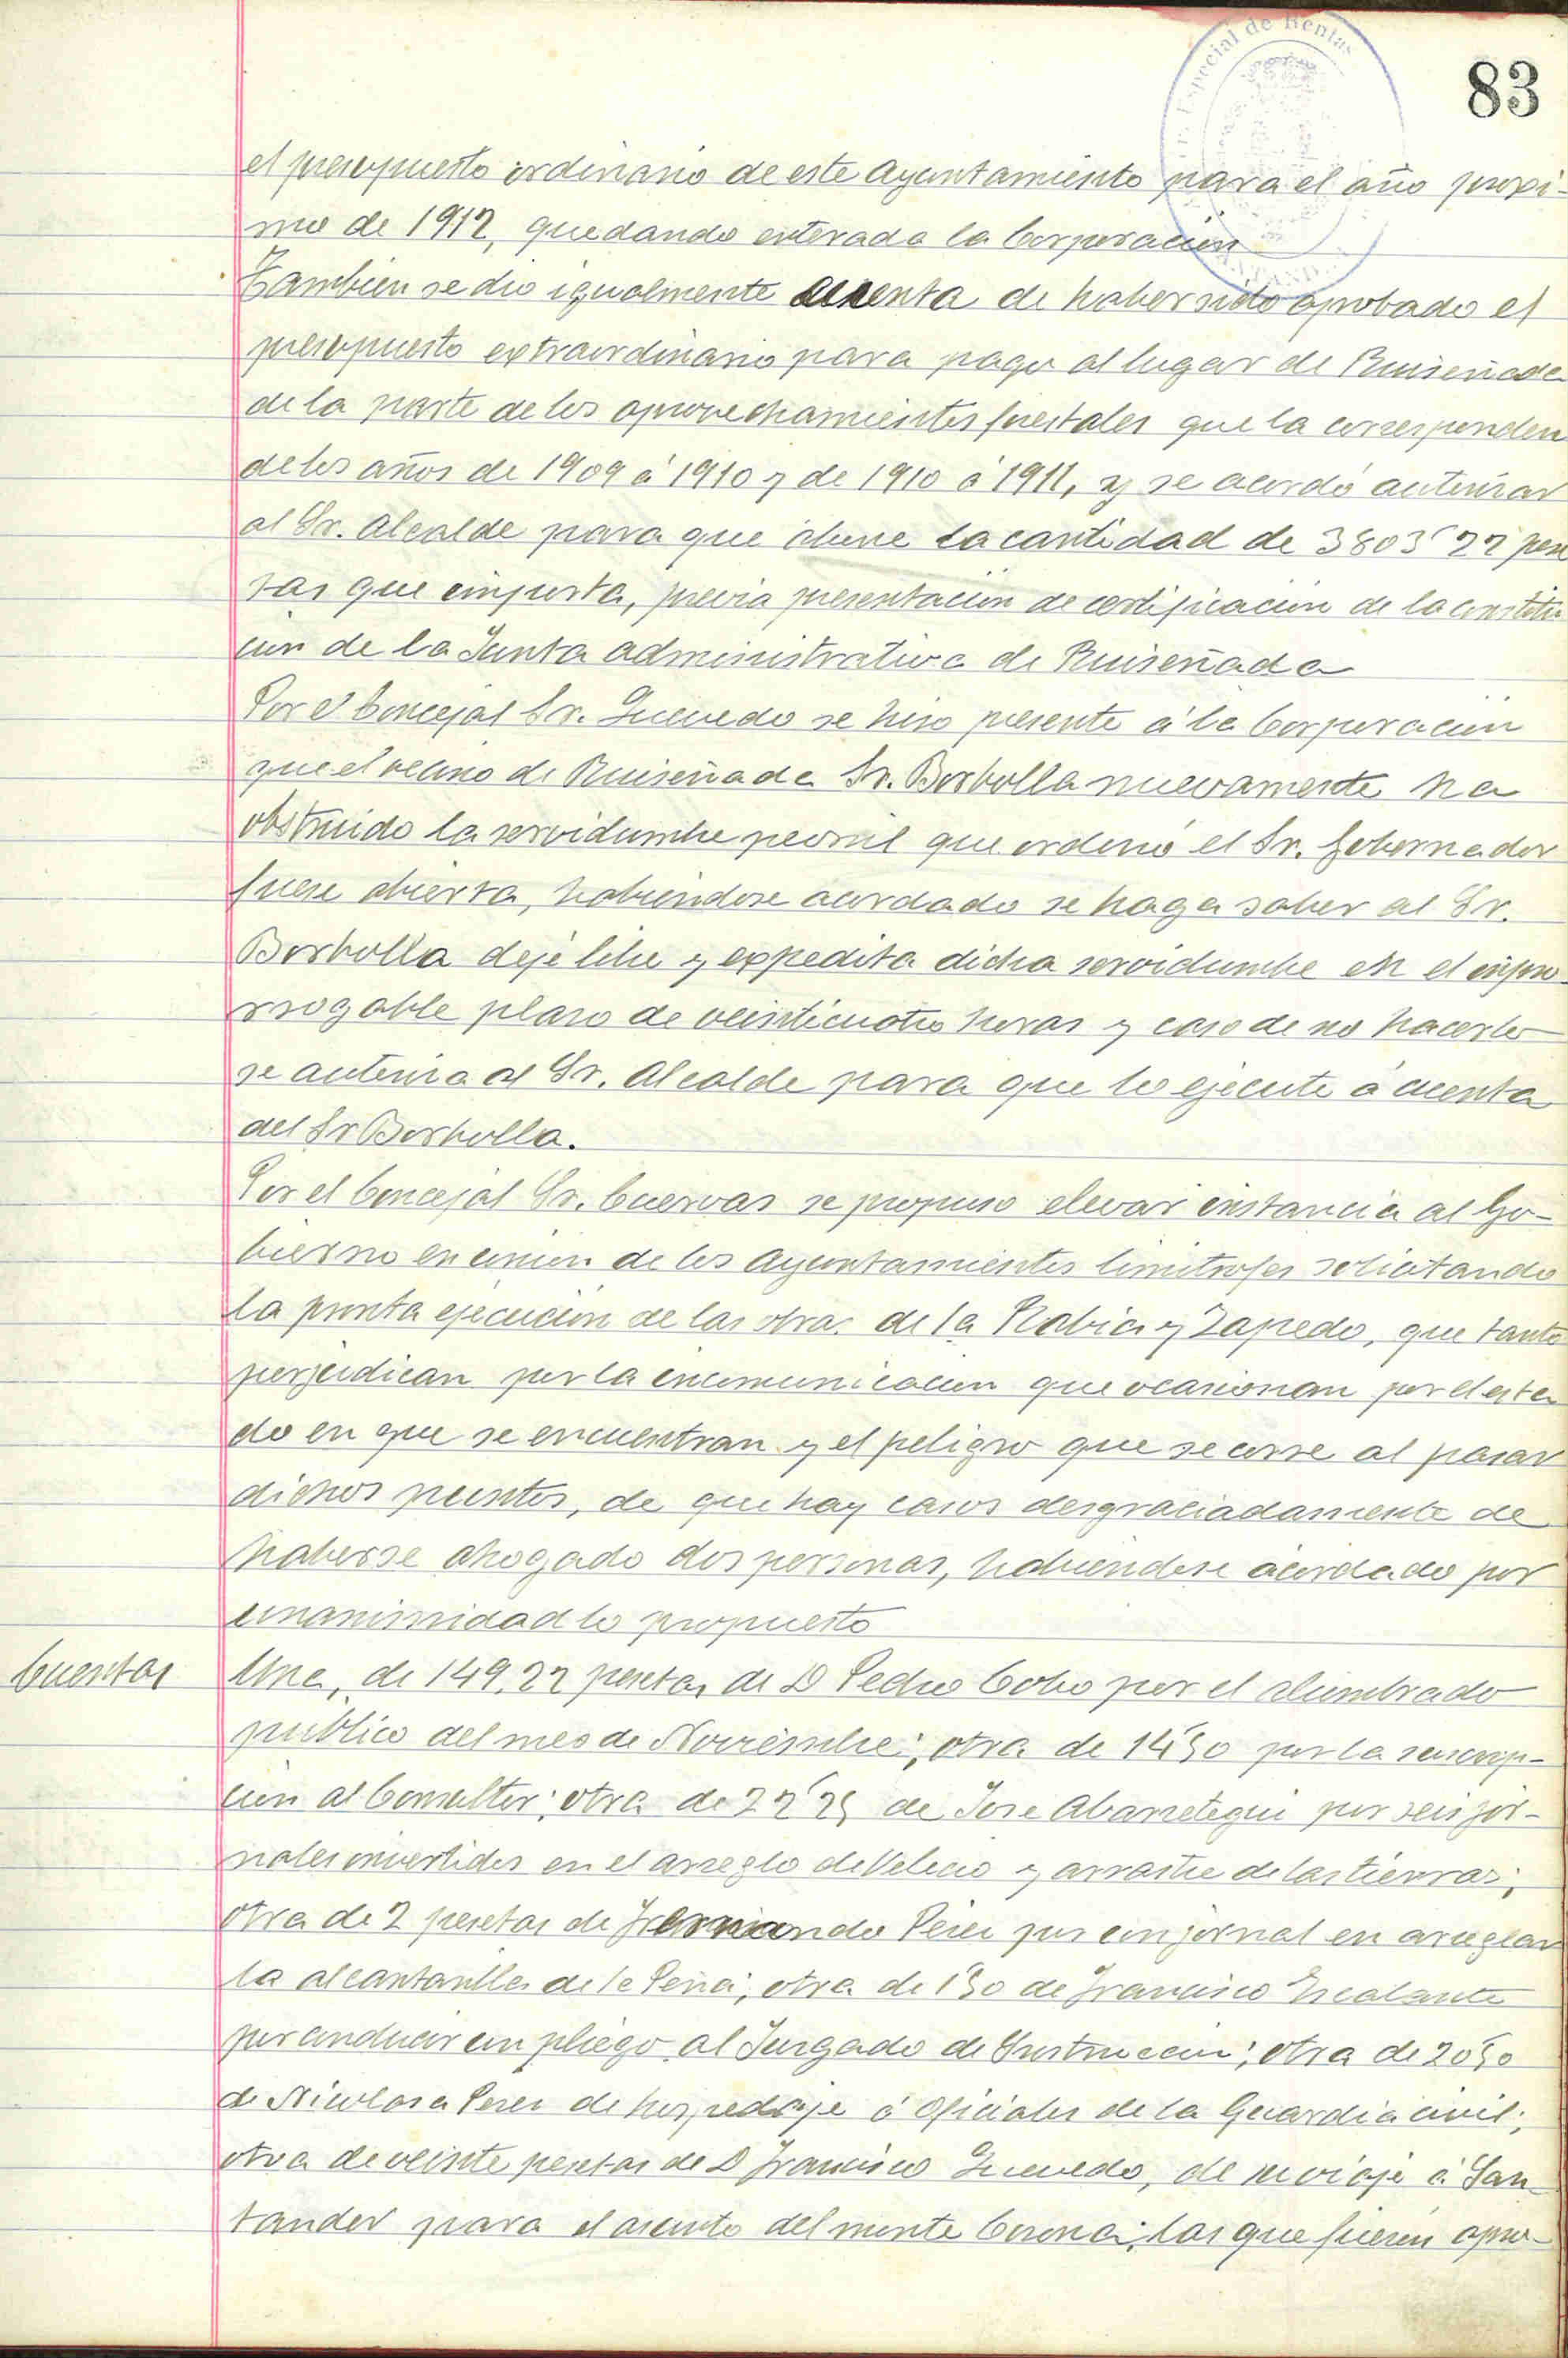 Especial de Rentas
83
el presupuesto ordinario de este Ayuntamiento para el año proxi-
mo de 1912, quedando enterada la Corporación
Tambien se dio igualmente cuenta de haber sido aprobado el
presupuesto extraordinario para pago al lugar de Ruiseñada
de la parte de los aprovechamientos forestales que la corresponden
de los años de 1909 á 1910 y de 1910 á 1911, y se acordó autorizar
al Sr. Alcalde para que abone la cantidad de 3803'22 pese
tas que importa, previa presentación de certificacion de la constitu
cion de la Junta administrativa de Ruiseñada
Por el Concejal Sr. Quevedo se hiso presente á la Corporacion
que el vecino de Ruiseñada Sr. Borbolla nuevamente ha
obstruido la servidumbre peonil que ordenó el Sr. Gobernador
fuese abierta, habiendose acordado se haga saber al Sr.
Borbolla deje libre y expedita dicha servidumbre en el impro-
rrogable plaso de veinticuatro horas y caso de no hacerlo
se autoriza al Sr. Alcalde para que lo ejecute á cuenta
del Sr Borbolla.
Por el Concejal Sr. Cuervas se propuso elevar instancia al Go-
bierno en union de los Ayuntamientos limitrofes solicitando
la pronta ejecución de las obras de la Rabia y Zapedo, que tanto
perjudican por la incomunicacion que ocasionan por el esta
do en que se encuentran y el peligro que se corre al pasar
dichos puntos, de que hay casos desgraciadamente de
haberse ahogado dos personas, habiendose acordado por
unanimidad lo propuesto
Cuentas
Una, de 149,22 pesetas de D Pedro Cobo por el alumbrado
publico del mes de Noviembre; otra de 14'50 por la suscrip-
cion al Consultor; otra de 22'25 de Jose Abarrategui por seis jor-
nales invertidos en el arreglo de Velecio y arrastre de las tierras;
otra de 2 pesetas de Fernando Perez por un jornal en arreglar
la alcantarilla de la Peña; otra de 1'50 de Francisco Escalante
por conducir un pliego al Jusgado de Instruccion; otra de 20'50
de Nicolasa Peres de hospedaje á Oficiales de la Guardia civil;
otra de veinte pesetas de D Francisco Quevedo, de su viaje á San-
tander para el asunto del monte Corona; las que fueron apro-